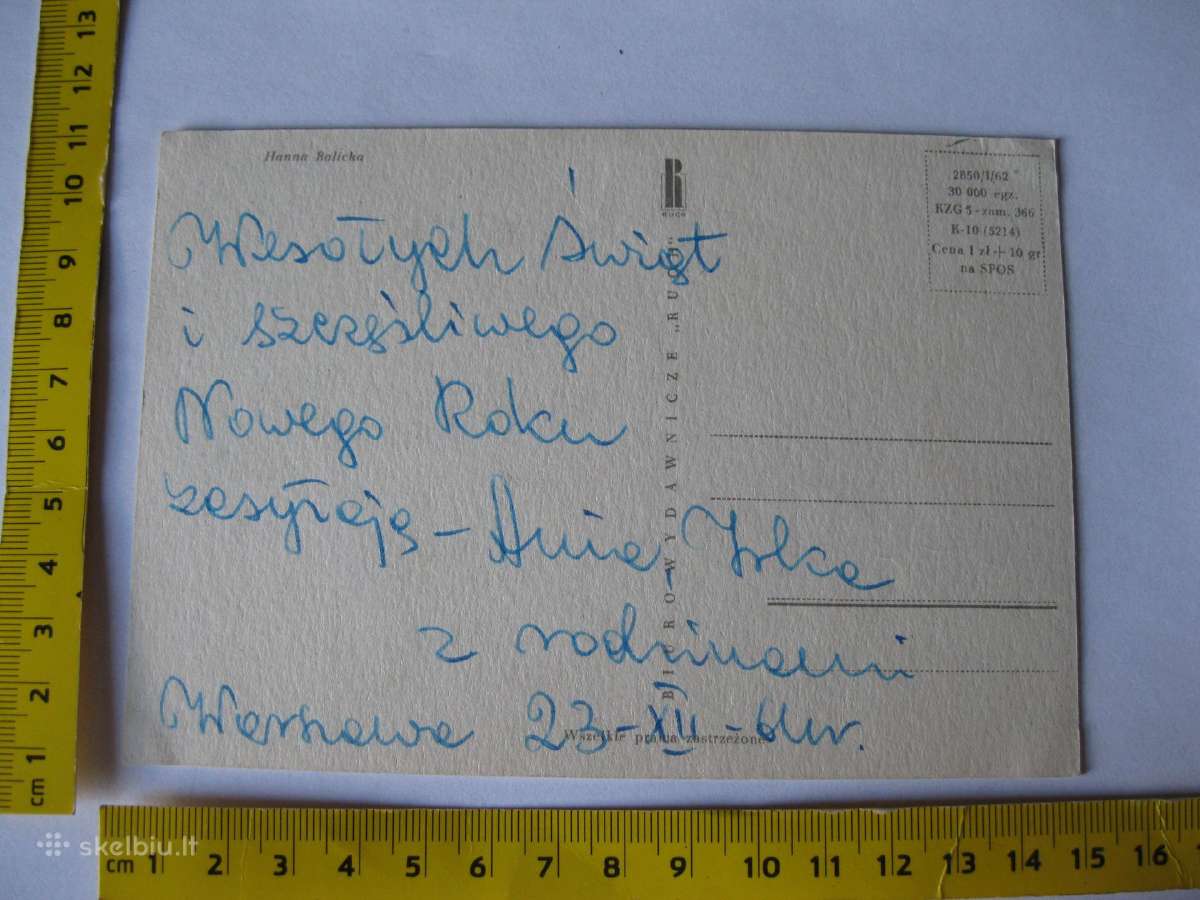 Hanna Balicka
RUCH
2850/I/62
30 000 egz.
KZG 5 - zam. 366
K-10 (5214)
Cena 1 zł + 10 gr
na SPOS
Wesołych Świąt
i szczęśliwego
Nowego Roku
zasyłają - Ania, Iska
z rodzinami
Warszawa 23-XII-64r.
BIURO WYDAWNICZE „RUCH”
Wszelkie prawa zastrzeżone
cm 1 2 3 4 5 6 7 8 9 10 11 12 13
cm 1 2 3 4 5 6 7 8 9 10 11 12 13 14 15 16
skelbiu.lt